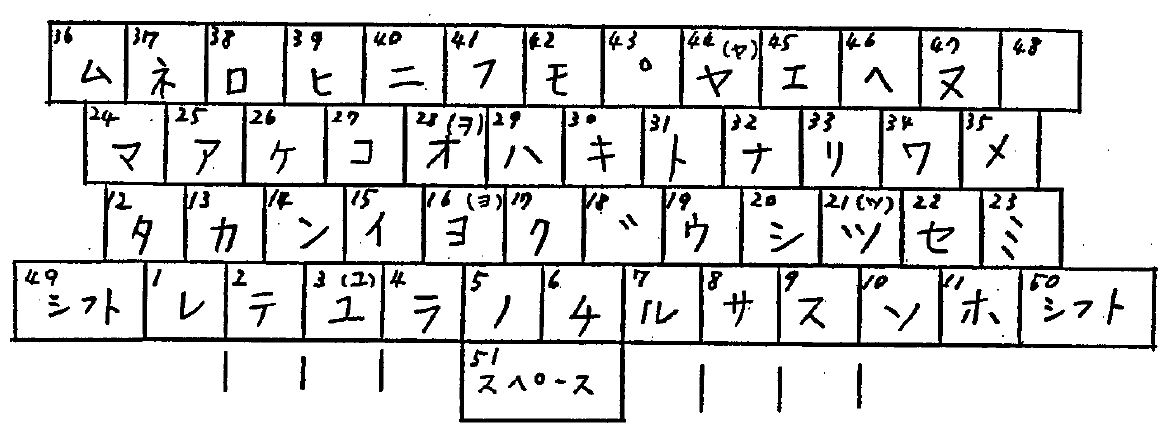 36 ム 37 ネ 38 ロ 39 ヒ 40 ニ 41 フ 42 モ 43 ゜ 44 (ャ) ヤ 45 エ 46 ヘ 47 ヌ 48
24 マ 25 ア 26 ケ 27 コ 28 (ヲ) オ 29 ハ 30 キ 31 ト 32 ナ 33 リ 34 ワ 35 メ
12 タ 13 カ 14 ン 15 イ 16 (ョ) ヨ 17 ク 18 ゛ 19 ウ 20 シ 21 (ッ) ツ 22 セ 23 ミ
49 シフト 1 レ 2 テ 3 (ュ) ユ 4 ラ 5 ノ 6 チ 7 ル 8 サ 9 ス 10 ソ 11 ホ 50 シフト
51 スペース